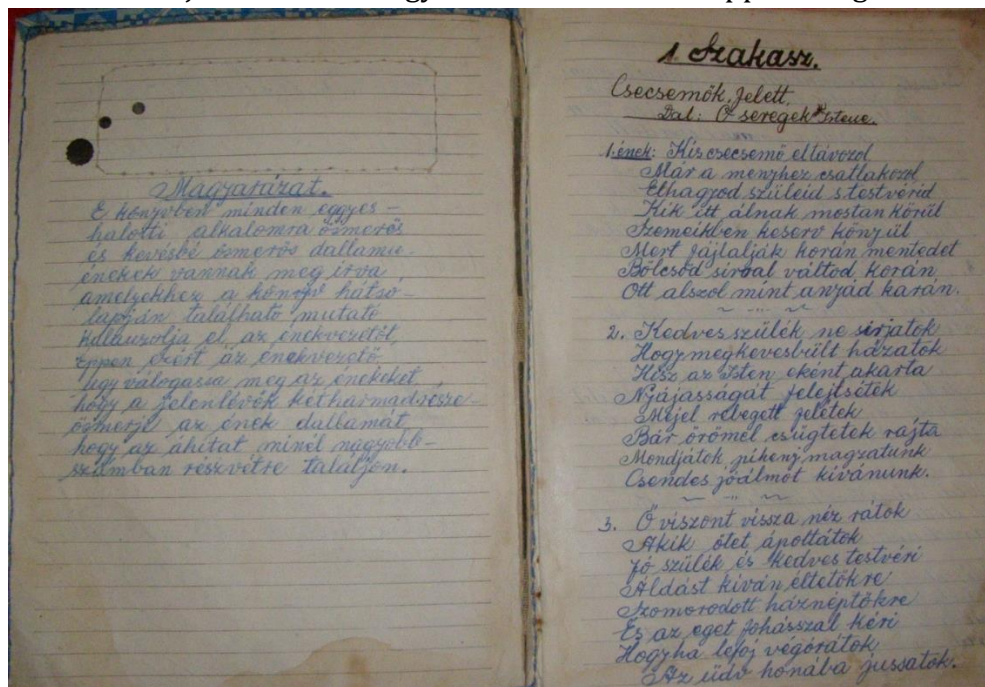 Magyarázat.
E könyvben minden eggyes –
halotti alkalomra ösmerős
és kevésbé ösmerős dallamu–
énekek vannak meg irva,
amelyekhez a könyv hátso–
lapján található mutató
kalauzolja el, az énekvezetőt,
éppen ezért az énekvezető
ugy válogassa meg az énekeket
hogy a jelenlévők kétharmadrésze–
ösmerje az ének dallamát
hogy az áhitat minél nagyobb–
számban részvétre találjon.
1. Szakasz.
Csecsemők felett.
Dal: Ó seregek Istene.
1. ének: Kis csecsemő eltávozol
Már a menyhez csatlakozol
Elhagyod szüleid s testvérid
Kik itt álnak mostan körül
Szemeikben keserv könyül
Mert fájlalják korán mentedet
Bölcsőd sirral váltod korán
Ott alszol mint anyád karán.
2. Kedves szülék ne sirjatok
Hogy megkevesbült házatok
Hisz az Isten eként akarta
Nyájasságát felejtsétek
Mejel rebegett feletek
Bár örömel csügtetek rajta
Mondjátok piheny magzatunk
Csendes jóálmot kivánunk.
3. Ő viszont vissza néz rátok
Akik ötet ápoltátok
Jó szülék és kedves testvéri
Áldást kiván éltetökre
Szomorodott háznéptökre
És az eget fohásszal kéri
Hogyha lefoj végórátok
Az üdv honába jussatok.